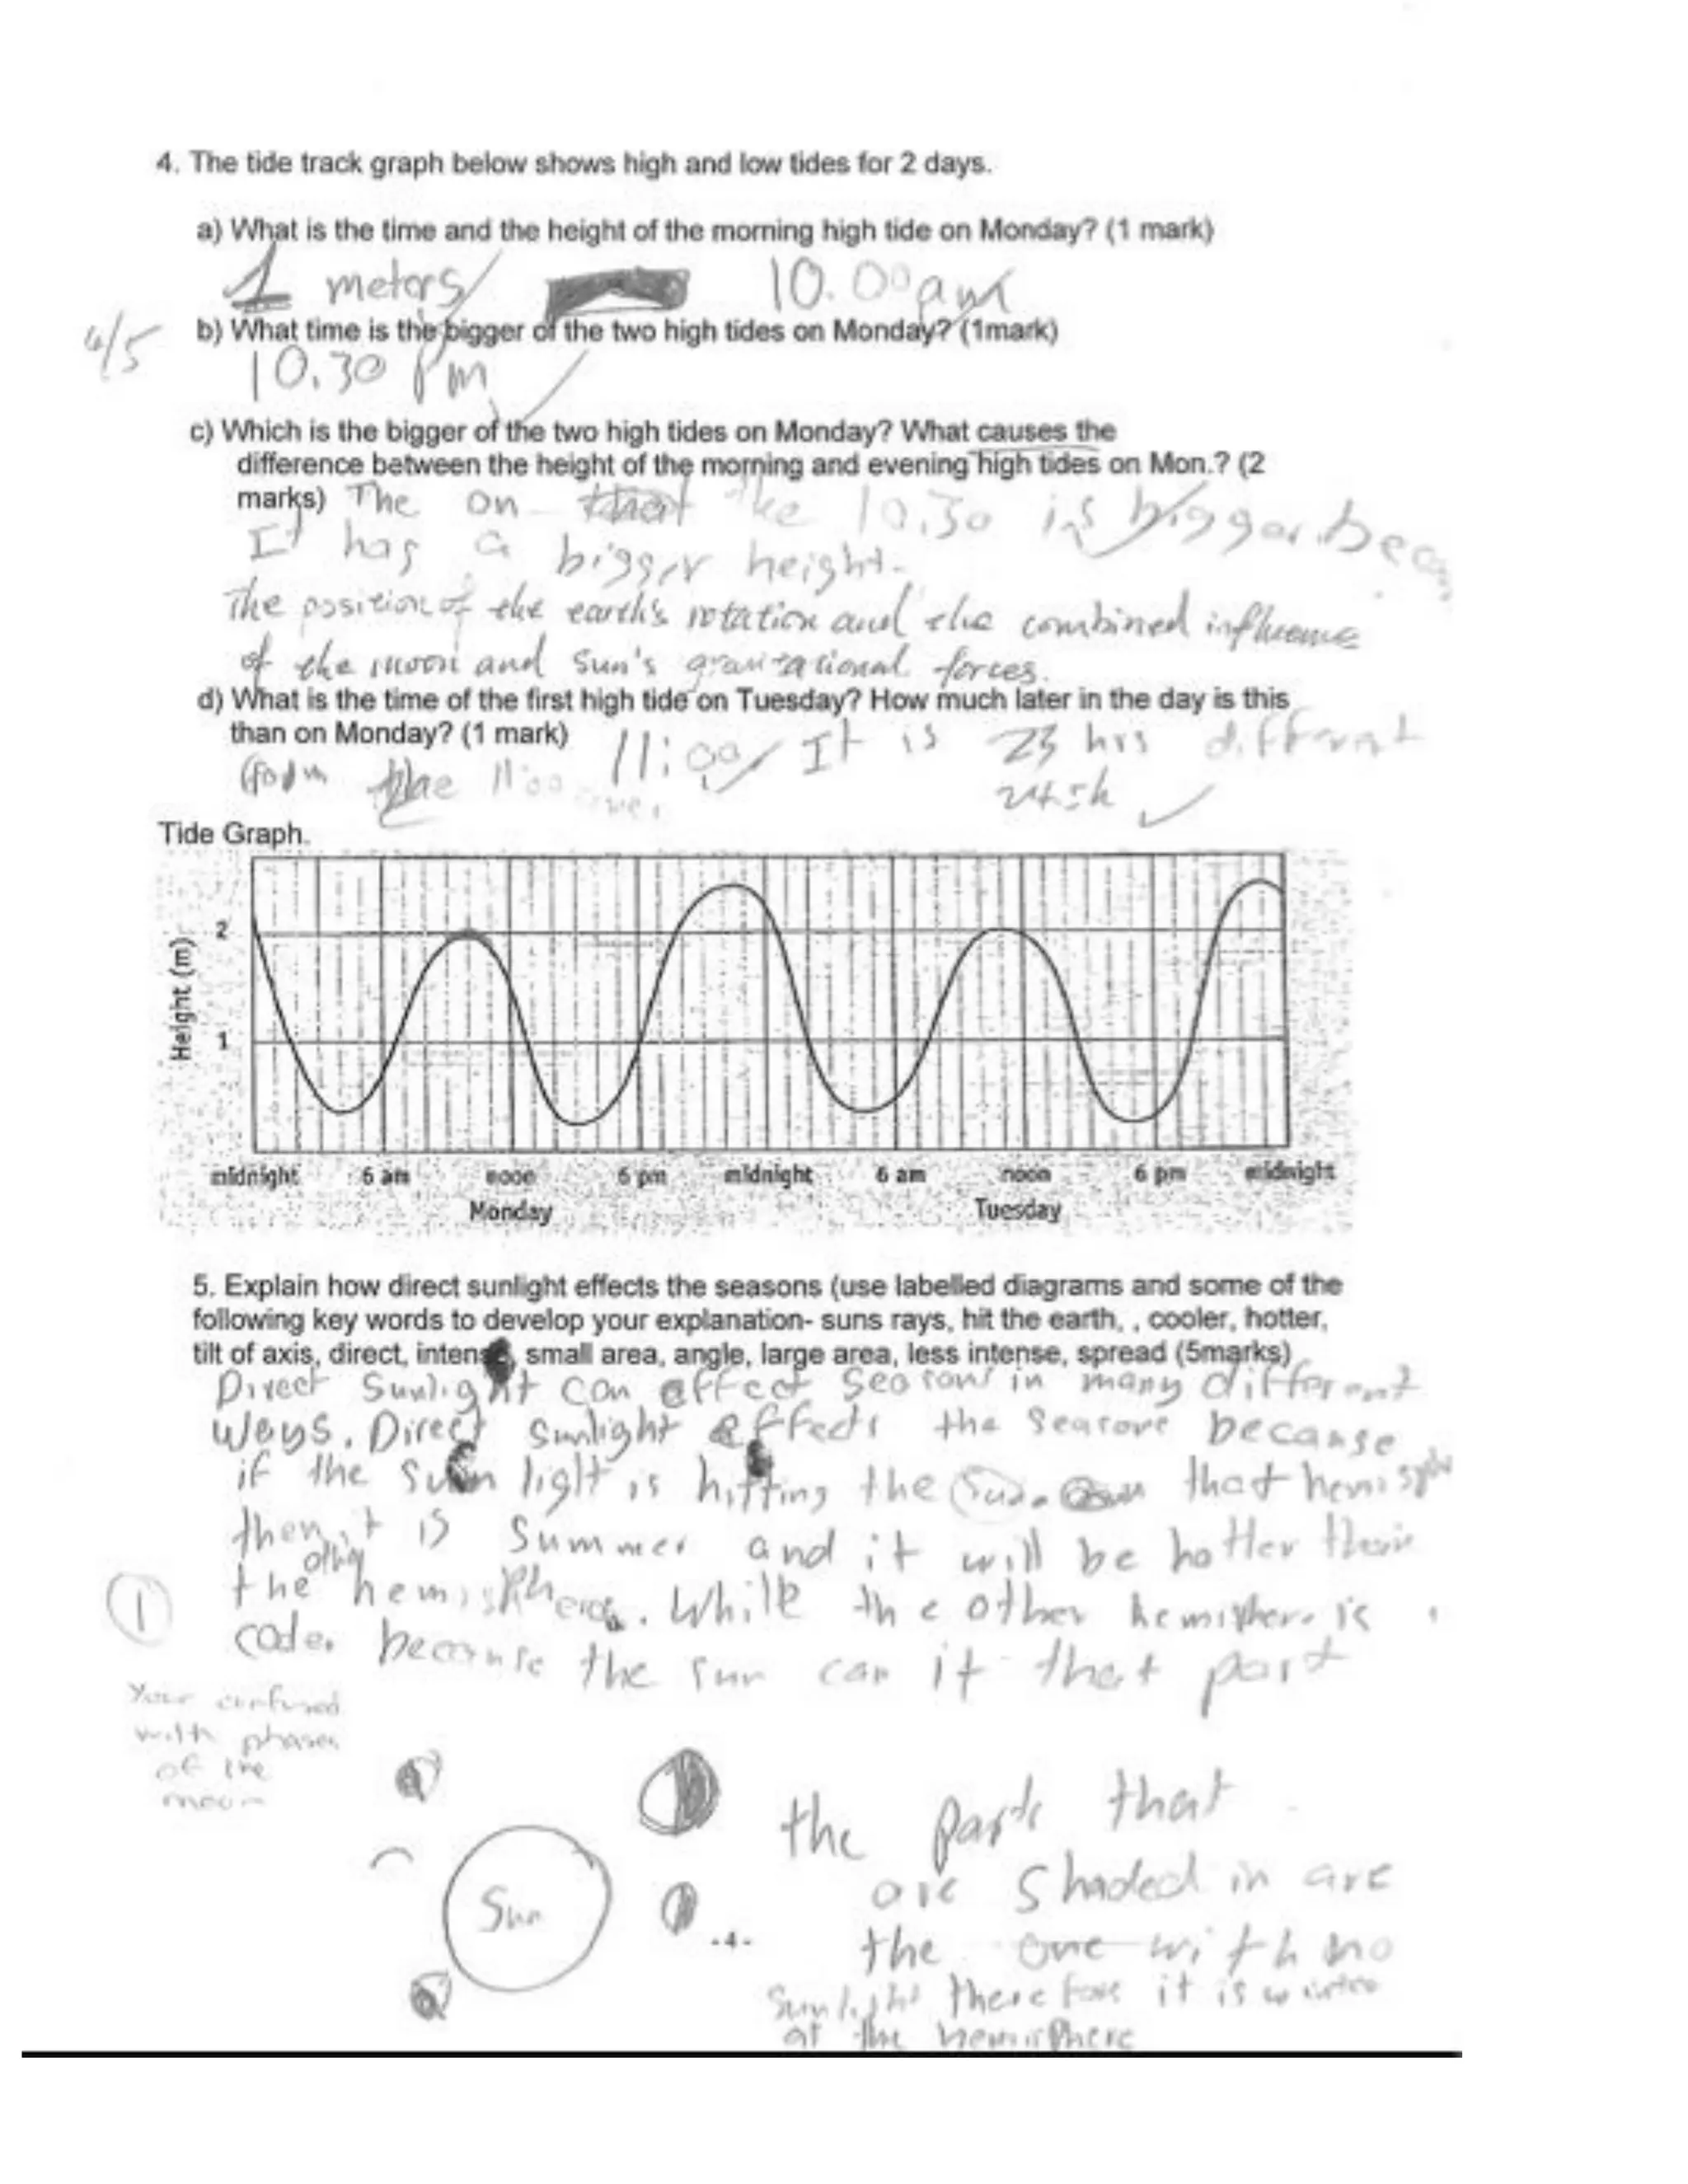 4. The tide track graph below shows high and low tides for 2 days.
a) What is the time and the height of the morning high tide on Monday? (1 mark)
1 meters 10.00am
4/5
b) What time is the bigger of the two high tides on Monday? (1mark)
10.30 pm
c) Which is the bigger of the two high tides on Monday? What causes the
difference between the height of the morning and evening high tides on Mon.? (2
marks) The on the 10.30 is bigger.
It has a bigger height.
The position of the earth's rotation and the combined influence
of the moon and sun's gravitational forces.
d) What is the time of the first high tide on Tuesday? How much later in the day is this
than on Monday? (1 mark) 11:00 It is 23 hrs different
the 11:00
Tide Graph.
Height (m)
2
1
midnight 6 am noon 6 pm midnight 6 am noon 6 pm midnight
Monday Tuesday
5. Explain how direct sunlight effects the seasons (use labelled diagrams and some of the
following key words to develop your explanation- suns rays, hit the earth, , cooler, hotter,
tilt of axis, direct, intense, small area, angle, large area, less intense, spread (5marks)
Direct Sunlight can effect seasons in many different
Ways. Direct sunlight effects the seasons because
if the sun light is hitting the that
then it is summer and it will be hotter
the other While the other is
because the sun can it that part
1
Your confused
with phases
of the
moon
Sun
the parts that
are shaded in are
the one with no
Sunlight therefore it is winter
at the hemisphere
-4-